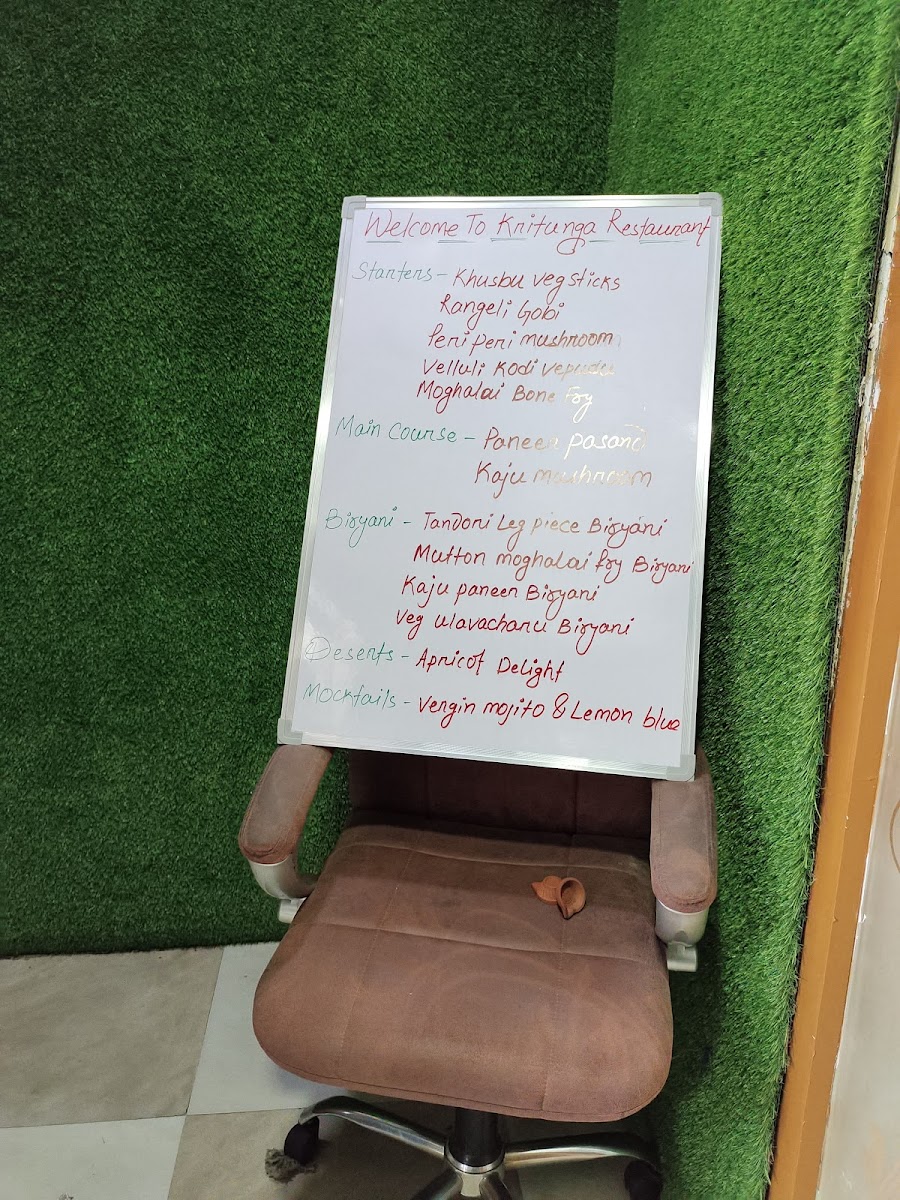 Welcome To Kritunga Restaurant
Starters - Khusbu veg sticks
Rangeli Gobi
Peri peri mushroom
Velluli Kodi vepudu
Moghalai Bone fry
Main course - Paneer pasand
Kaju mushroom
Biryani - Tandori Leg piece Biryani
Mutton moghalai fry Biryani
Kaju paneer Biryani
Veg ulavacharu Biryani
Deserts - Apricot Delight
Mocktails - Vergin mojito & Lemon blue